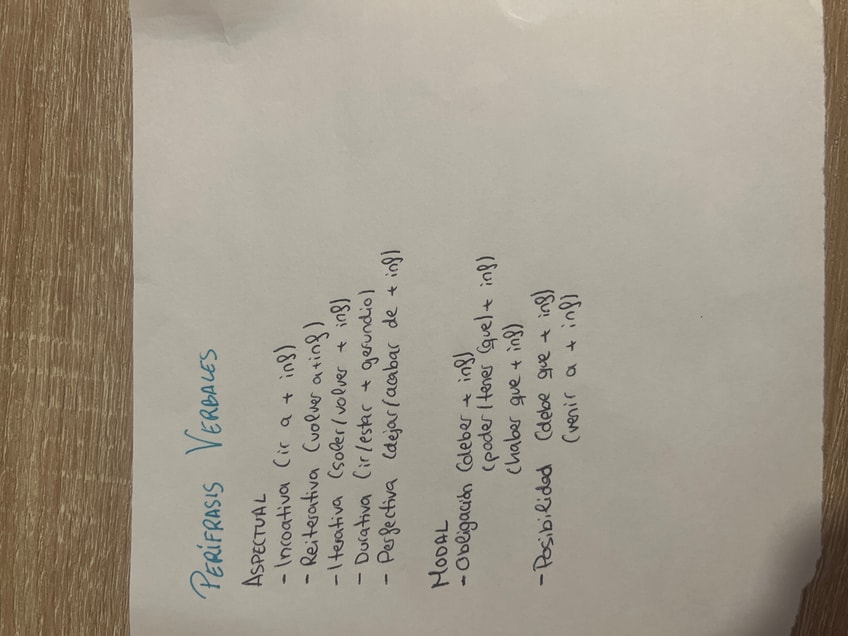 PERÍFRASIS VERBALES
ASPECTUAL
- Incoativa (ir a + inf)
- Reiterativa (volver a + inf)
- Iterativa (soler/volver + inf)
- Durativa (ir/estar + gerundio)
- Perfectiva (dejar/acabar de + inf)
MODAL
- Obligación (deber + inf)
(poder/tener (que) + inf)
(haber que + inf)
- Posibilidad (debe que + inf)
(venir a + inf)